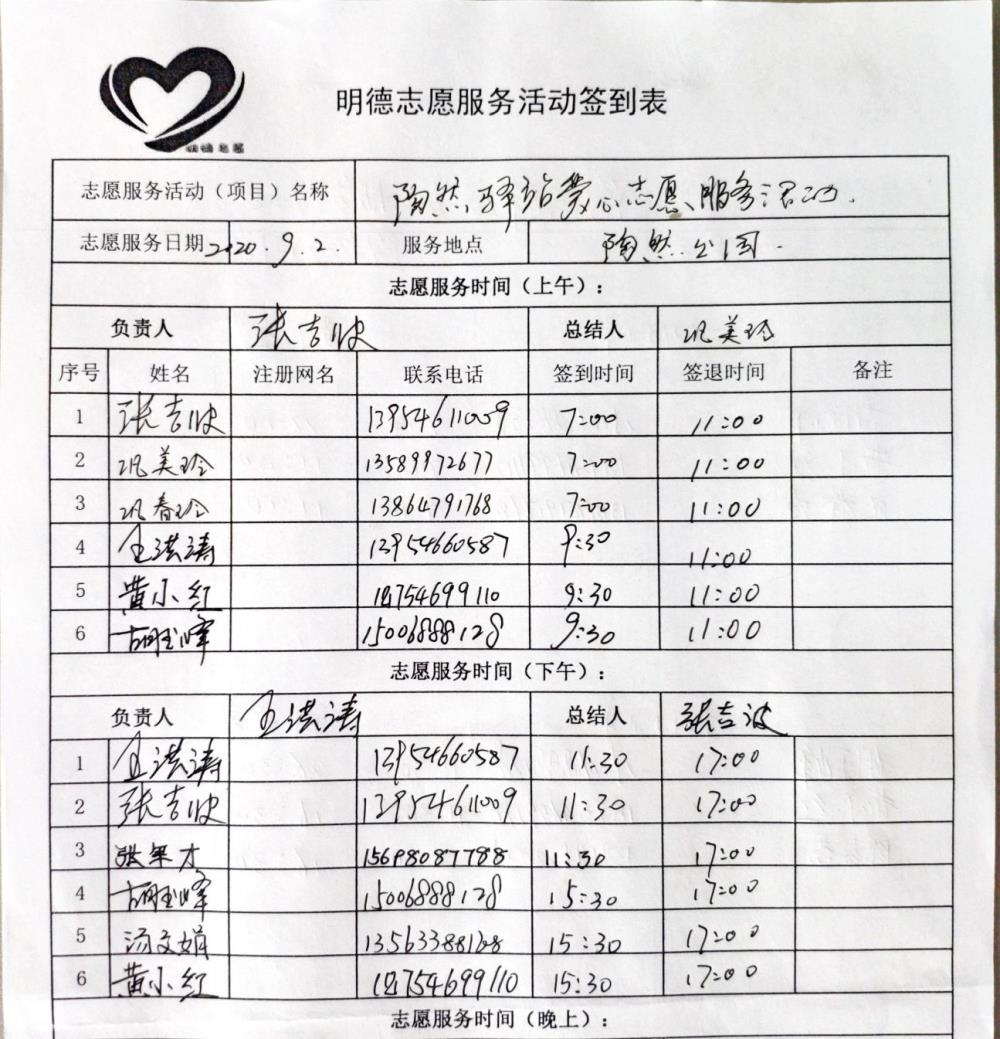 明德志愿服务活动签到表
志愿服务活动（项目）名称 陶然驿站爱心志愿服务活动.
志愿服务日期 2020.9.2. 服务地点 陶然公园.
志愿服务时间（上午）：
负责人 张吉波 总结人 巩美玲
序号 姓名 注册网名 联系电话 签到时间 签退时间 备注
1 张吉波 13954611009 7:00 11:00
2 巩美玲 13589972677 7:00 11:00
3 巩春玲 13864791768 7:00 11:00
4 王洪涛 13954660587 9:30 11:00
5 黄小红 18754699110 9:30 11:00
6 胡玉峰 15006888128 9:30 11:00
志愿服务时间（下午）：
负责人 王洪涛 总结人 张吉波
1 王洪涛 13954660587 11:30 17:00
2 张吉波 13954611009 11:30 17:00
3 张 才 15698087788 11:30 17:00
4 胡玉峰 15006888128 15:30 17:00
5 汤文娟 15:30 17:00
6 黄小红 18754699110 15:30 17:00
志愿服务时间（晚上）：